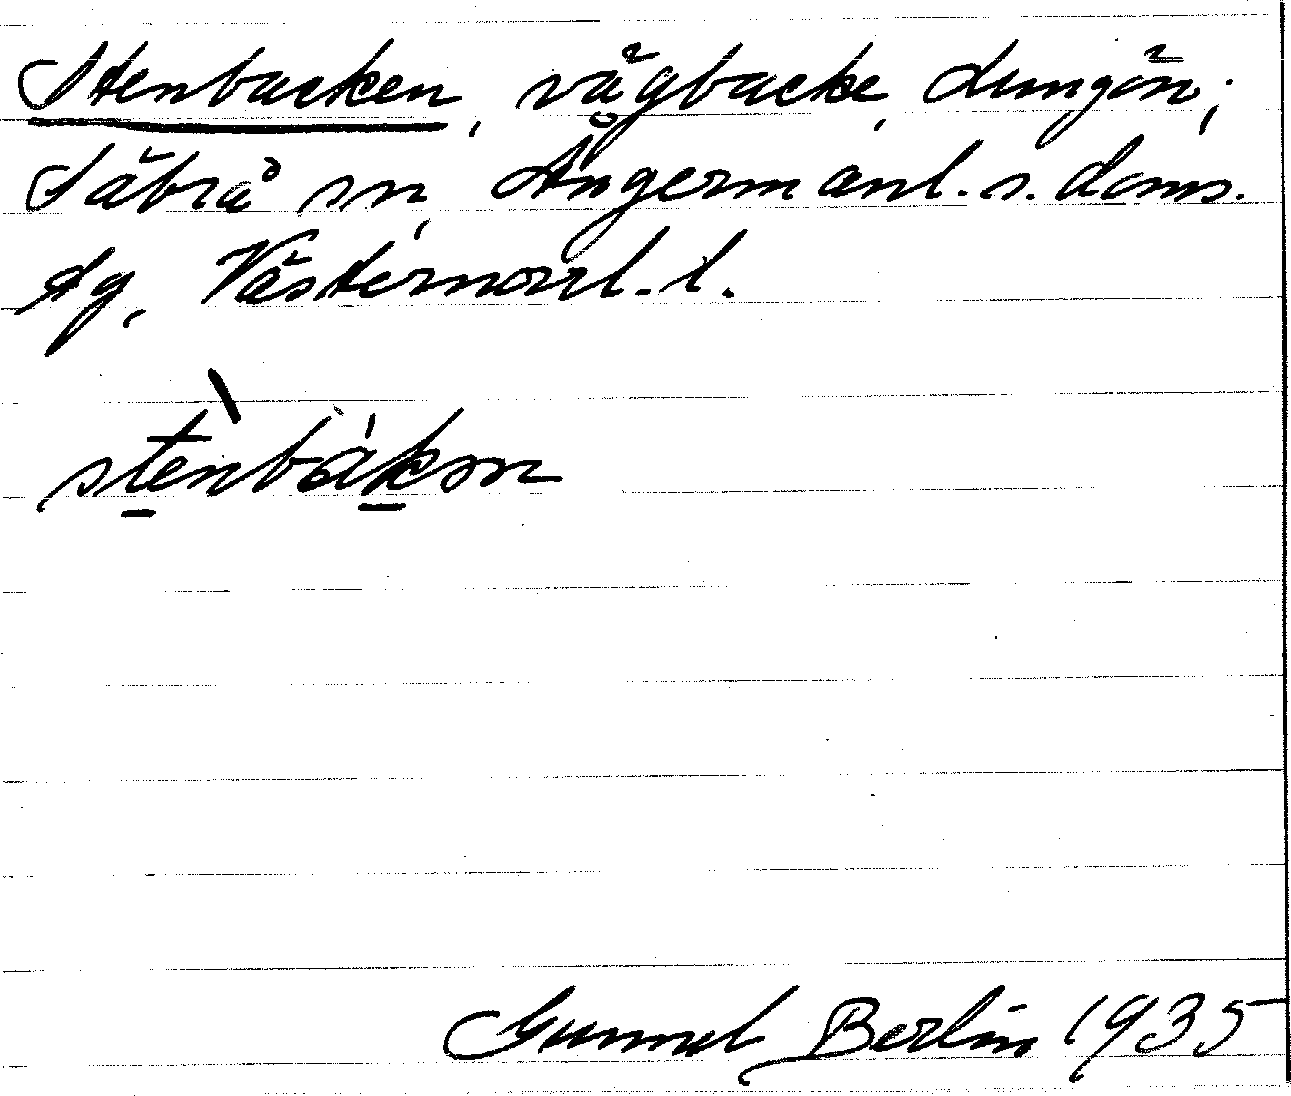 Stenbacken, vägbacke, Lungön,
Säbrå sn, Ångermanl. s. doms.
dg, Västernorrl. l.
stènbákən
Gunnel Berlin 1935